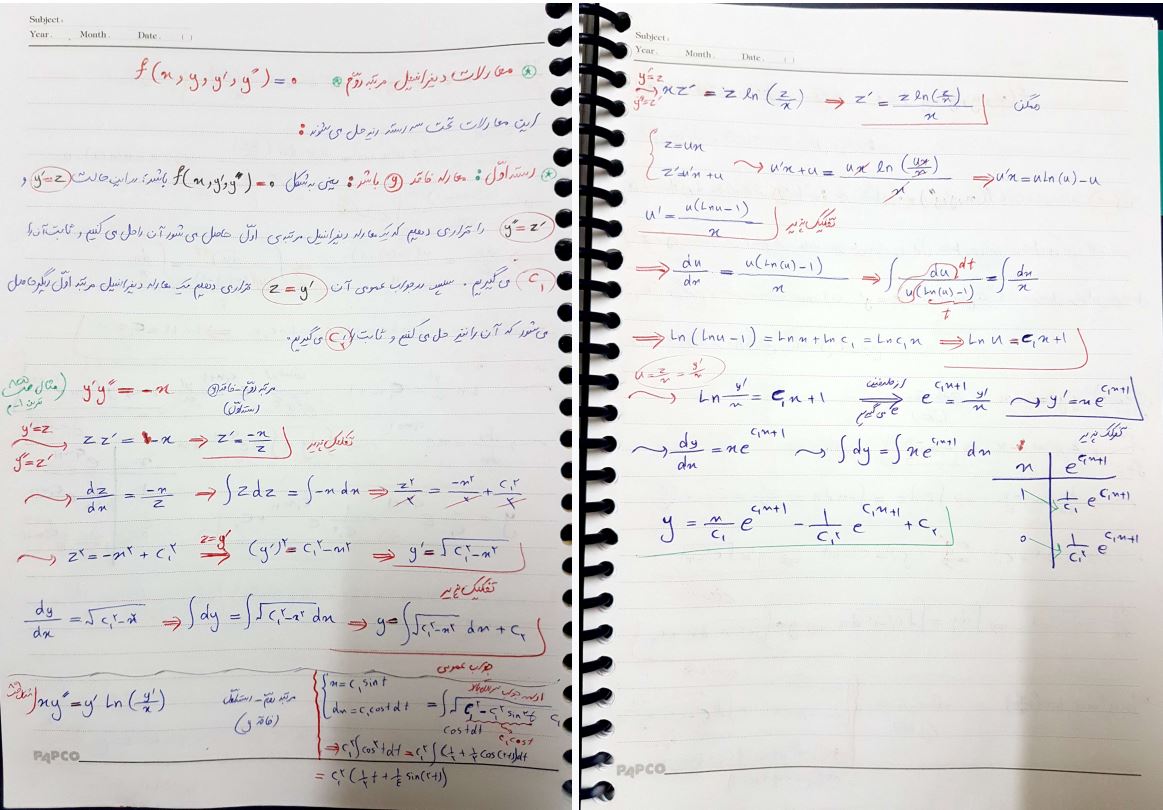 Subject:
Year. Month. Date. ( )
* معادلات دیفرانسیل مرتبه دوّم * f(x, y, y', y'') = 0
این معادلات تحت سه دسته زیر حل می شوند :
* دسته اوّل : معادله فاقد y باشد : یعنی به شکل f(x, y', y'') = 0 باشد؛ در این حالت y' = z و
y'' = z' را قرار می دهیم که یک معادله دیفرانسیل مرتبه ی اوّل حاصل می شود آن را حل می کنیم و ثابت آن را
C₁ می گیریم. سپس در جواب عمومی آن z = y' قرار می دهیم یک معادله دیفرانسیل مرتبه اوّل دیگر حاصل
می شود که آن را نیز حل می کنیم و ثابت را C₂ می گیریم.
مثال y'y'' = -x مرتبه دوّم - فاقد y (دسته اوّل)
y' = z
y'' = z' z z' = -x ⇒ z' = -x/z تفکیک پذیر
dz/dx = -x/z ⇒ ∫z dz = ∫-x dx ⇒ z²/2 = -x²/2 + C₁²/2
z² = -x² + C₁² ⇒ z = y' (y')² = C₁² - x² ⇒ y' = √(C₁² - x²)
تفکیک پذیر
dy/dx = √(C₁² - x²) ⇒ ∫dy = ∫√(C₁² - x²) dx ⇒ y = ∫√(C₁² - x²) dx + C₂
جواب عمومی
xy'' = y' Ln(y'/x) مرتبه دوّم - دسته اوّل (فاقد y)
x = C₁ sin t
dx = C₁ cos t dt = ∫√(C₁² - C₁² sin² t) C₁ cos t dt
C₁ cos t
⇒ C₁² ∫cos² t dt = C₁² ∫(1/2 + 1/2 cos(2t)) dt
= C₁² (1/2 t + 1/4 sin(2t))
PAPCO
Subject:
Year. Month. Date. ( )
y' = z
y'' = z' xz' = z ln(z/x) ⇒ z' = z ln(z/x) / x همگن
z = ux
z' = u'x + u u'x + u = ux ln(ux/x) / x ⇒ u'x = u Ln(u) - u
u' = u(Ln u - 1) / x تفکیک پذیر
⇒ du/dx = u(Ln(u) - 1) / x ⇒ ∫ du / u(Ln(u) - 1) = ∫ dx/x
dt
t
⇒ Ln(Ln u - 1) = Ln x + Ln C₁ = Ln C₁x ⇒ Ln u = C₁x + 1
u = z/x = y'/x
Ln y'/x = C₁x + 1 ⇒ از طرفین e می گیریم e^(C₁x+1) = y'/x y' = x e^(C₁x+1)
تفکیک پذیر
dy/dx = x e^(C₁x+1) ∫dy = ∫x e^(C₁x+1) dx
x | e^(C₁x+1)
1 | 1/C₁ e^(C₁x+1)
0 | 1/C₁² e^(C₁x+1)
y = x/C₁ e^(C₁x+1) - 1/C₁² e^(C₁x+1) + C₂
PAPCO